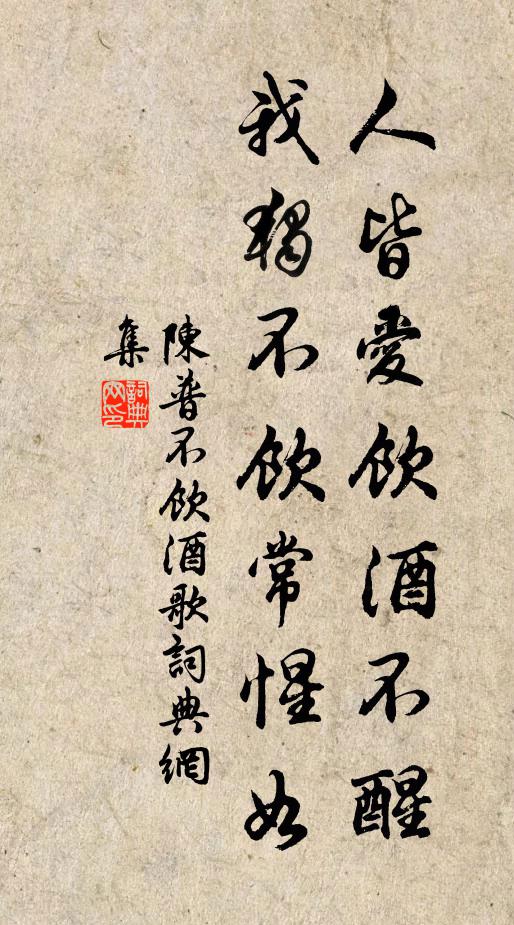 人皆愛飲酒不醒
我獨不飲常惺如
陳普不飲酒歌詞典網
集
詞典網印